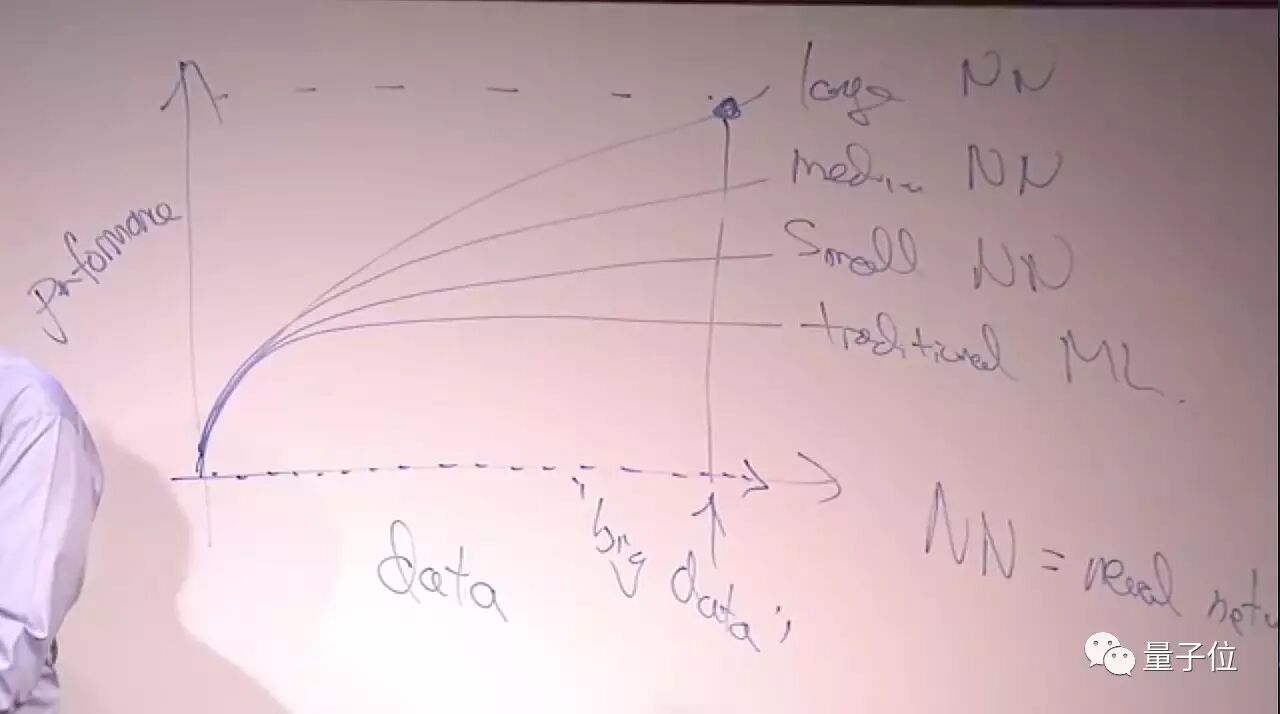 large NN
medium NN
small NN
traditional ML
performance
data
"big data"
NN = neural netw
量子位